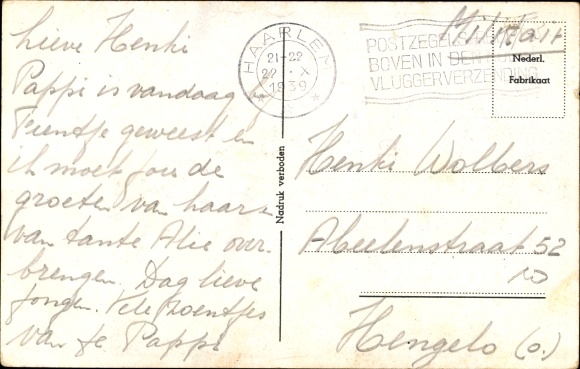 Lieve Henki
Pappi is vandaag bij
Tientje geweest en
ik moet jou de
groeten van haar en
van tante Alie over-
brengen. Dag lieve
jongen. Vele zoentjes
van je Pappi
Nadruk verboden
HAARLEM
21-22
22 . X
1939
POSTZEGEL
BOVEN IN DEN
VLUGGERVERZENDING
Militair
Nederl.
Fabrikaat
Henki Wolbers
Abeelenstraat 52
Hengelo (O.)